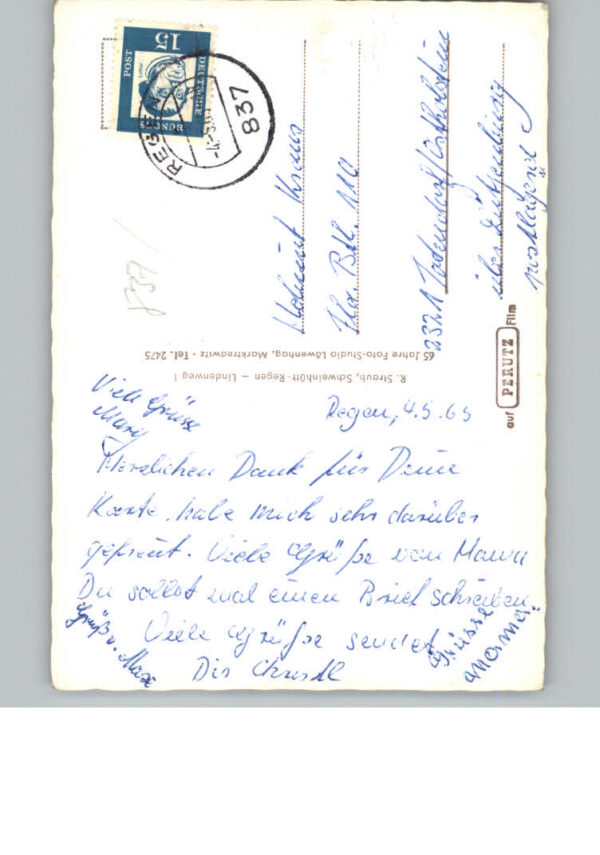 15
POST
DEUTSCHE
BUNDES
REGEN
837
837
Helmut Kraus
Fla Btl. 110
2321 Todendorf/Ostholstein
über Lütjenburg
postlagernd
R. Straub, Schweinhütt-Regen – Lindenweg 1
65 Jahre Foto-Studio Löwenhag, Marktredwitz · Tel. 2475
auf PERUTZ Film
Viele Grüsse
Regen, 4.5.63
Herzlichen Dank für Deine
Karte, habe mich sehr darüber
gefreut. Viele Grüße von Mama
Du sollst mal einen Brief schreiben.
Viele Grüße sendet
Dir Christl
Grüß v. Max
Grüsse